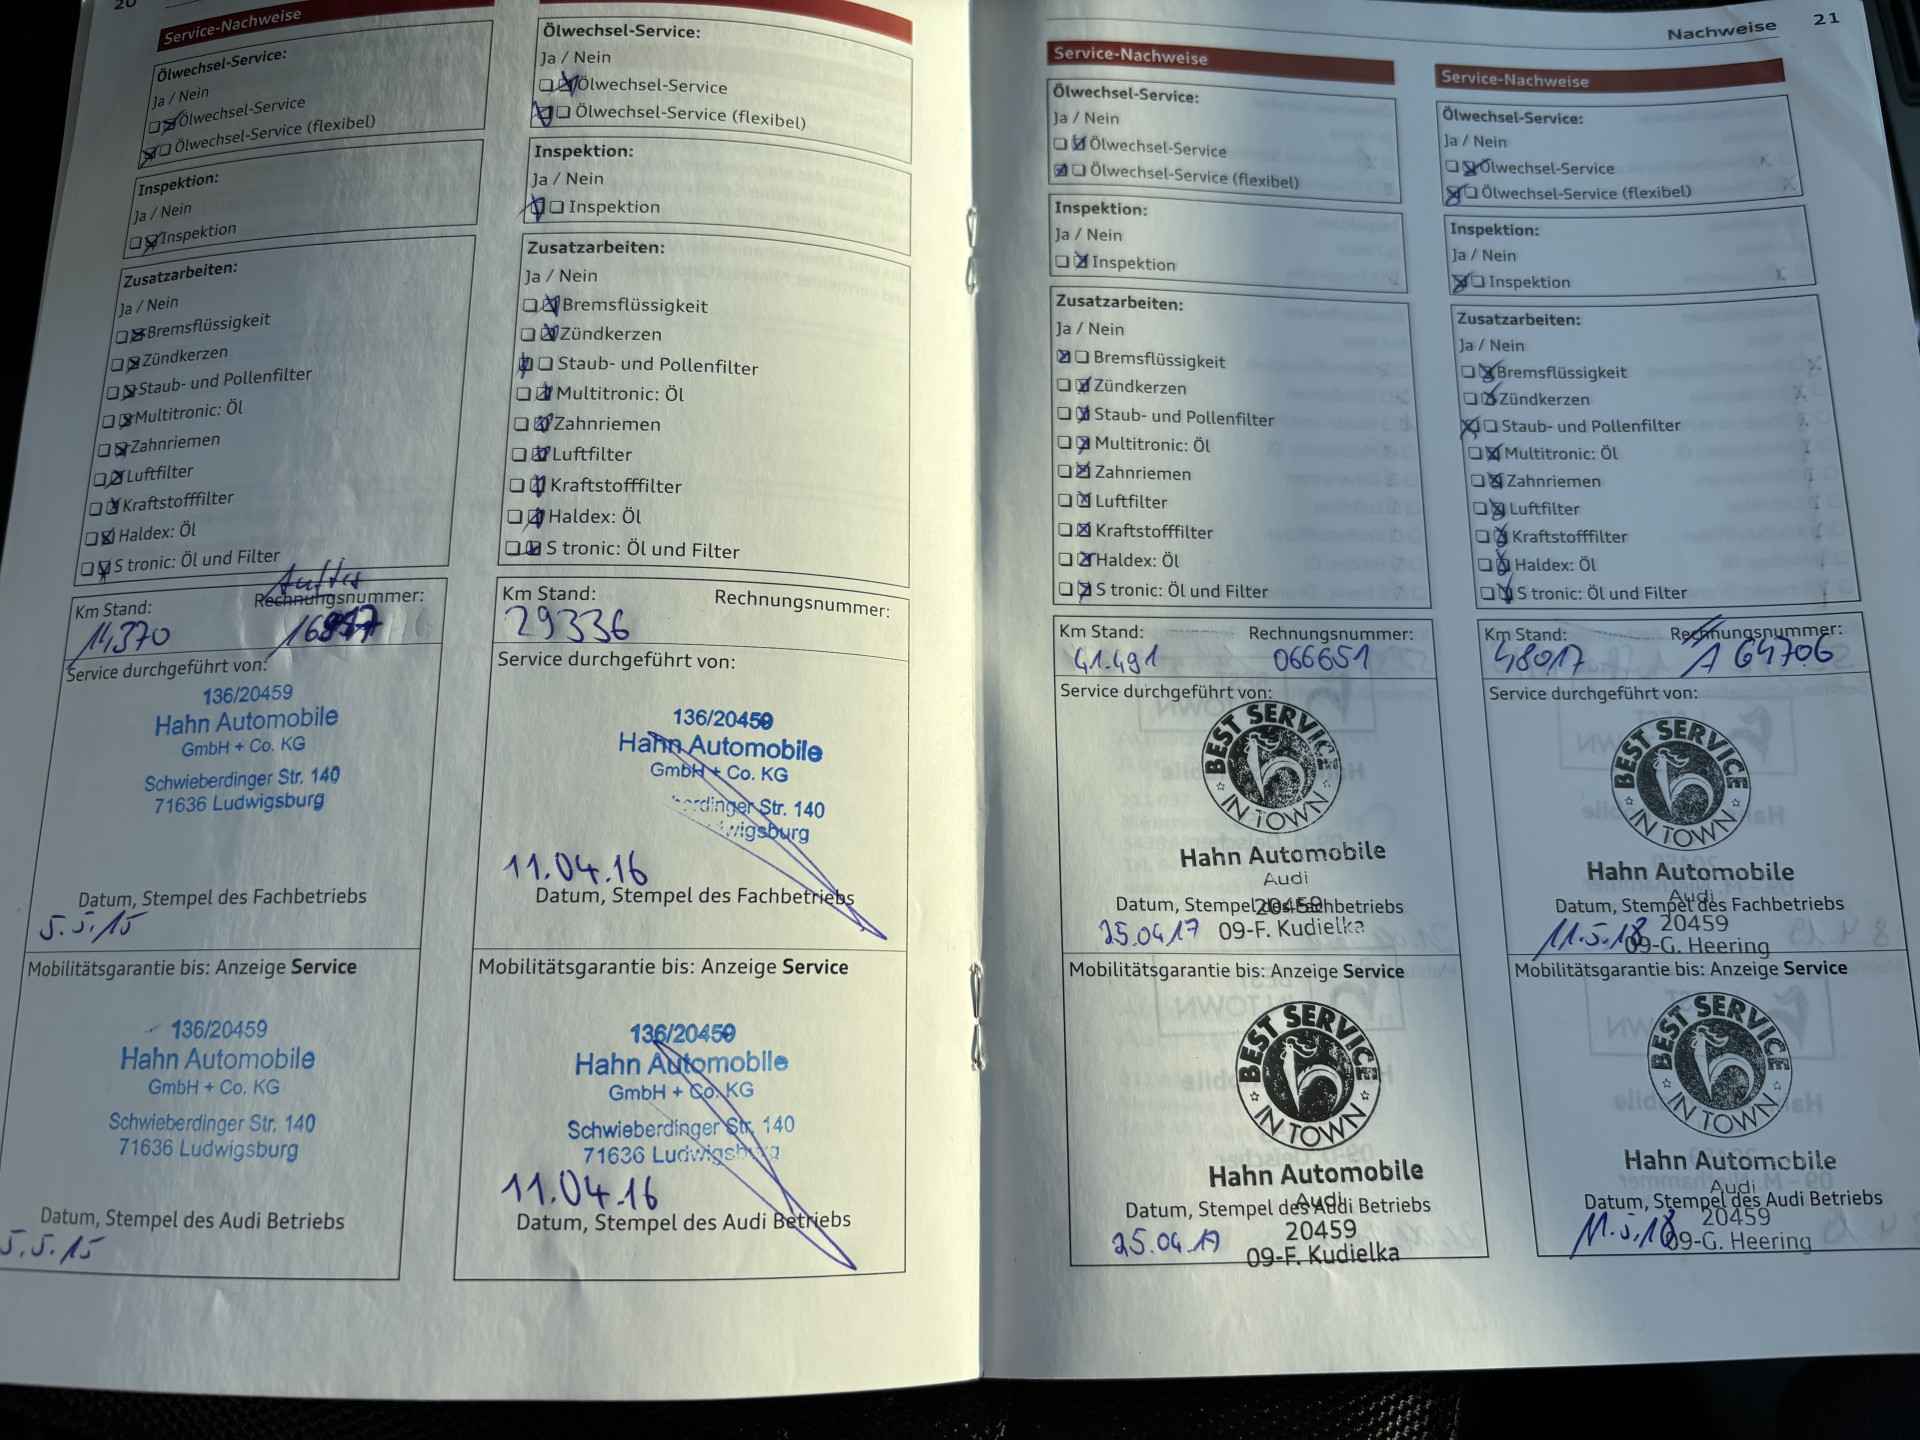 20
Service-Nachweise
Ölwechsel-Service:
Ja / Nein
Ölwechsel-Service
Ölwechsel-Service (flexibel)
Inspektion:
Ja / Nein
Inspektion
Zusatzarbeiten:
Ja / Nein
Bremsflüssigkeit
Zündkerzen
Staub- und Pollenfilter
Multitronic: Öl
Zahnriemen
Luftfilter
Kraftstofffilter
Haldex: Öl
S tronic: Öl und Filter
Km Stand:
Rechnungsnummer:
14370
Service durchgeführt von:
136/20459
Hahn Automobile
GmbH + Co. KG
Schwieberdinger Str. 140
71636 Ludwigsburg
Datum, Stempel des Fachbetriebs
5.5.15
Mobilitätsgarantie bis: Anzeige Service
136/20459
Hahn Automobile
GmbH + Co. KG
Schwieberdinger Str. 140
71636 Ludwigsburg
Datum, Stempel des Audi Betriebs
5.5.15
Ölwechsel-Service:
Ja / Nein
Ölwechsel-Service
Ölwechsel-Service (flexibel)
Inspektion:
Ja / Nein
Inspektion
Zusatzarbeiten:
Ja / Nein
Bremsflüssigkeit
Zündkerzen
Staub- und Pollenfilter
Multitronic: Öl
Zahnriemen
Luftfilter
Kraftstofffilter
Haldex: Öl
S tronic: Öl und Filter
Km Stand:
Rechnungsnummer:
29336
Service durchgeführt von:
136/20459
Hahn Automobile
GmbH + Co. KG
Str. 140
11.04.16
Datum, Stempel des Fachbetriebs
Mobilitätsgarantie bis: Anzeige Service
136/20459
Hahn Automobile
GmbH + Co. KG
Schwieberdinger Str. 140
71636 Ludwigsburg
11.04.16
Datum, Stempel des Audi Betriebs
Nachweise 21
Service-Nachweise
Ölwechsel-Service:
Ja / Nein
Ölwechsel-Service
Ölwechsel-Service (flexibel)
Inspektion:
Ja / Nein
Inspektion
Zusatzarbeiten:
Ja / Nein
Bremsflüssigkeit
Zündkerzen
Staub- und Pollenfilter
Multitronic: Öl
Zahnriemen
Luftfilter
Kraftstofffilter
Haldex: Öl
S tronic: Öl und Filter
Km Stand:
Rechnungsnummer:
41.491
066651
Service durchgeführt von:
BEST SERVICE
IN TOWN
Hahn Automobile
Audi
Datum, Stempel des Fachbetriebs
20459
25.04.17
09-F. Kudielka
Mobilitätsgarantie bis: Anzeige Service
BEST SERVICE
IN TOWN
Hahn Automobile
Audi
Datum, Stempel des Audi Betriebs
20459
25.04.17
09-F. Kudielka
Service-Nachweise
Ölwechsel-Service:
Ja / Nein
Ölwechsel-Service
Ölwechsel-Service (flexibel)
Inspektion:
Ja / Nein
Inspektion
Zusatzarbeiten:
Ja / Nein
Bremsflüssigkeit
Zündkerzen
Staub- und Pollenfilter
Multitronic: Öl
Zahnriemen
Luftfilter
Kraftstofffilter
Haldex: Öl
S tronic: Öl und Filter
Km Stand:
Rechnungsnummer:
48017
A 64706
Service durchgeführt von:
BEST SERVICE
IN TOWN
Hahn Automobile
Audi
Datum, Stempel des Fachbetriebs
20459
11.5.18
09-G. Heering
Mobilitätsgarantie bis: Anzeige Service
BEST SERVICE
IN TOWN
Hahn Automobile
Audi
Datum, Stempel des Audi Betriebs
20459
11.5.18
09-G. Heering